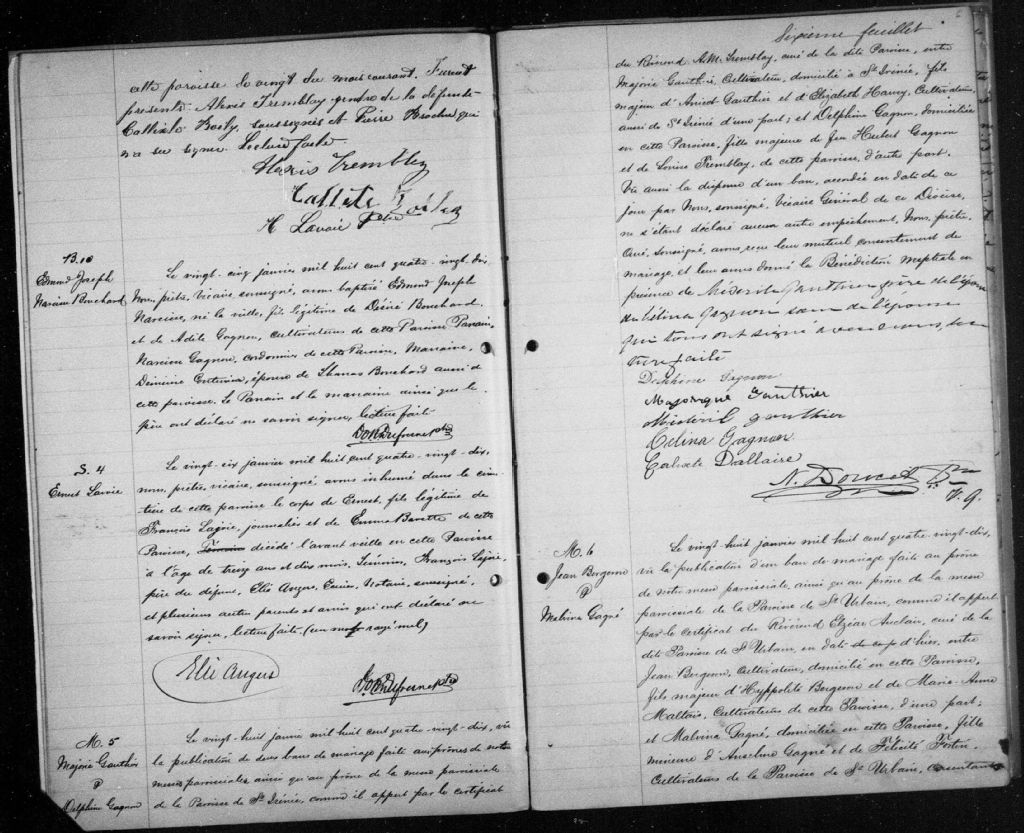 cette paroisse le vingt du mois courant. Furent
présents: Alexis Tremblay gendre de la défunte
Callixte Boily, soussignés et Pierre Brochu qui
n'a su signer. Lecture faite
Alexis Tremblay
Callixte Boily
N. Lavoie Ptre
B. 10
Edmond Joseph
Narcisse Bouchard
Le vingt-cinq janvier mil huit cent quatre-vingt-dix,
Nous, prêtre, vicaire soussigné, avons baptisé Edmond Joseph
Narcisse, né la veille, fils légitime de Désiré Bouchard
et de Adèle Gagnon, cultivateurs de cette Paroisse. Parrain,
Narcisse Gagnon, cordonnier de cette Paroisse, Marraine,
épouse de Thomas Bouchard aussi de
cette paroisse. Le Parrain et la marraine ainsi que le
père ont déclaré ne savoir signer, lecture faite
Dufour Ptre
S. 4
Ernest Lavoie
Le vingt-six janvier mil huit cent quatre-vingt-dix,
nous, prêtre, vicaire, soussigné, avons inhumé dans le cime-
tière de cette paroisse le corps de Ernest, fils légitime de
François Lajoie, journalier et de Emma de cette
Paroisse, décédé l'avant veille en cette Paroisse
à l'âge de treize ans et dix mois. Témoins, François Lajoie,
père du défunt, Elie Angers, Ecuier, Notaire, soussigné,
et plusieurs autres parents et amis qui ont déclaré ne
savoir signer, lecture faite. (un mot rayé nul)
Elie Angers
Dufour Ptre
M. 5
Majorie Gauthier
&
Delphine Gagnon
Le vingt-huit janvier mil huit cent quatre-vingt-dix, vu
la publication de deux bans de mariage faite aux prônes de notre
messes paroissiales ainsi qu'au prône de la messe paroissiale
de la Paroisse de St. Irénée, comme il appert par le certificat
Sixième feuillet
du Révérend A.M. Tremblay, curé de la dite Paroisse, entre
Majorie Gauthier, Cultivateur, domicilié à St. Irénée, fils
majeur d'Anicet Gauthier et d'Elizabeth Harvey, Cultivateurs,
aussi de St. Irénée d'une part; et Delphine Gagnon, domiciliée
en cette Paroisse, fille majeure de feu Hubert Gagnon
et de Louise Tremblay, de cette paroisse, d'autre part.
Vu aussi la dispense d'un ban, accordée en date de ce
jour par Nous, soussigné, Vicaire Général de ce Diocèse,
ne s'étant déclaré aucun autre empêchement, Nous, prêtre,
Curé, soussigné, avons reçu leur mutuel consentement de
mariage, et leur avons donné la Bénédiction Nuptiale en
présence de Médéril Gauthier frère de l'époux
de Célina Gagnon sœur de l'épouse
qui tous ont signé avec nous, lec-
ture faite
Delphine Gagnon
Majorique Gauthier
Médéril Gauthier
Célina Gagnon
Calixte Dallaire
N. Doucet Ptre
V. G.
M. 6
Jean Bergeron
&
Malvina Gagné
Le vingt huit janvier mil huit cent quatre-vingt-dix,
vu la publication d'un ban de mariage faite au prône
de notre messe paroissiale, ainsi qu'au prône de la messe
paroissiale de la Paroisse de St. Urbain, comme il appert
par le certificat du Révérend Elzéar Auclair, curé de la
dite Paroisse de St. Urbain, en date d'hier, entre
Jean Bergeron, Cultivateur, domicilié en cette Paroisse,
fils majeur d'Hyppolite Bergeron et de Marie-Anne
Maltais, Cultivateurs de cette Paroisse, d'une part;
et Malvina Gagné, domiciliée en cette Paroisse, fille
mineure d'Anselme Gagné et de Félicité Fortin,
Cultivateurs de la Paroisse de St. Urbain, consentants